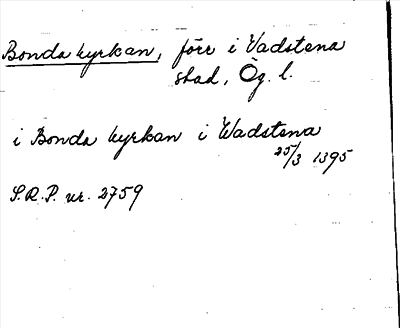 Bonda kyrkan, förr i Vadstena
stad, Ög. l.
i Bonda kyrkan i Wadstena
25/3 1395
S.R.P. nr. 2759